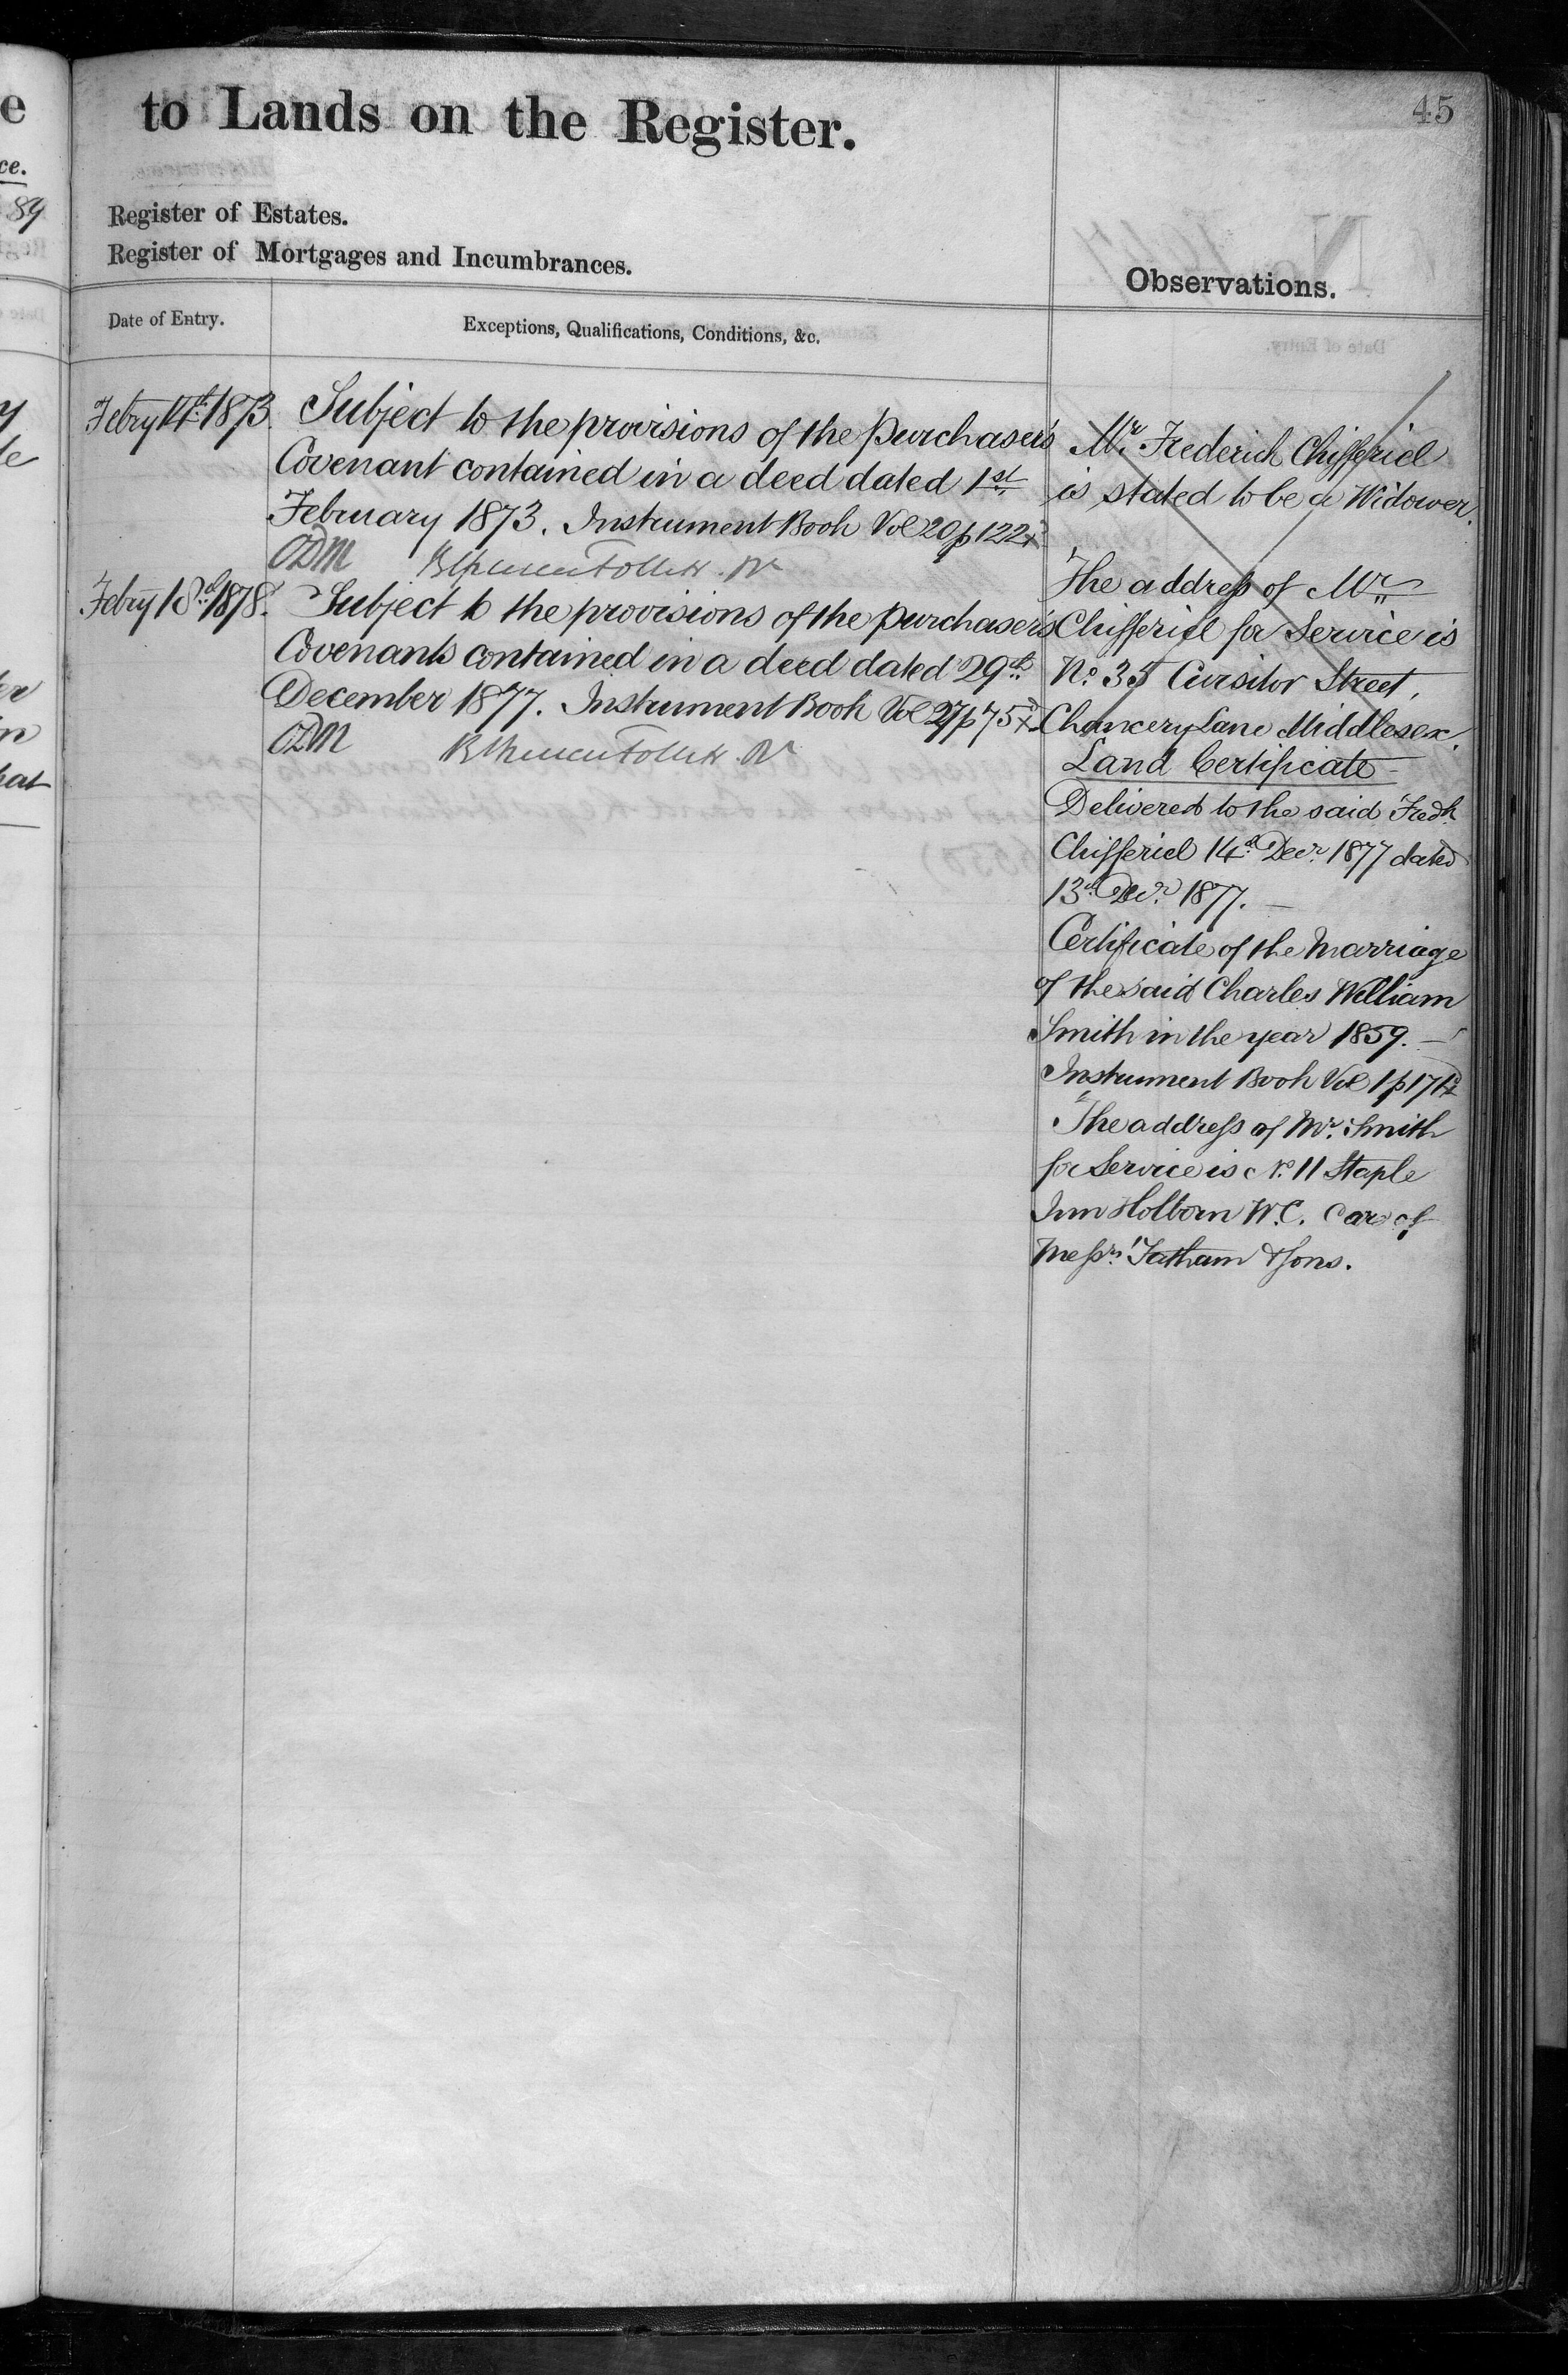 to Lands on the Register.
45
Register of Estates.
Register of Mortgages and Incumbrances.
Observations.
Date of Entry.
Exceptions, Qualifications, Conditions, &c.
Febry 1873.
Subject to the provisions of the purchaser's
Covenant contained in a deed dated 1st
February 1873. Instrument Book Vol 20 p 122
Febry 18th 1878.
Subject to the provisions of the purchaser's
Covenants contained in a deed dated 29th
December 1877. Instrument Book Vol 27 p 75
Mr. Frederick Chifferiel
is stated to be a Widower.
The address of Mr
Chifferiel for Service is
No. 35 Cursitor Street,
Chancery Lane Middlesex.
Land Certificate
Delivered to the said Fredk
Chifferiel 14th Decr. 1877 dated
13th Decr. 1877.
Certificate of the Marriage
of the said Charles William
Smith in the year 1859.
Instrument Book Vol 1 p 171
The address of Mr. Smith
for Service is No. 11 Staple
Inn Holborn W.C. Care of
Messrs. Tatham & Sons.
89